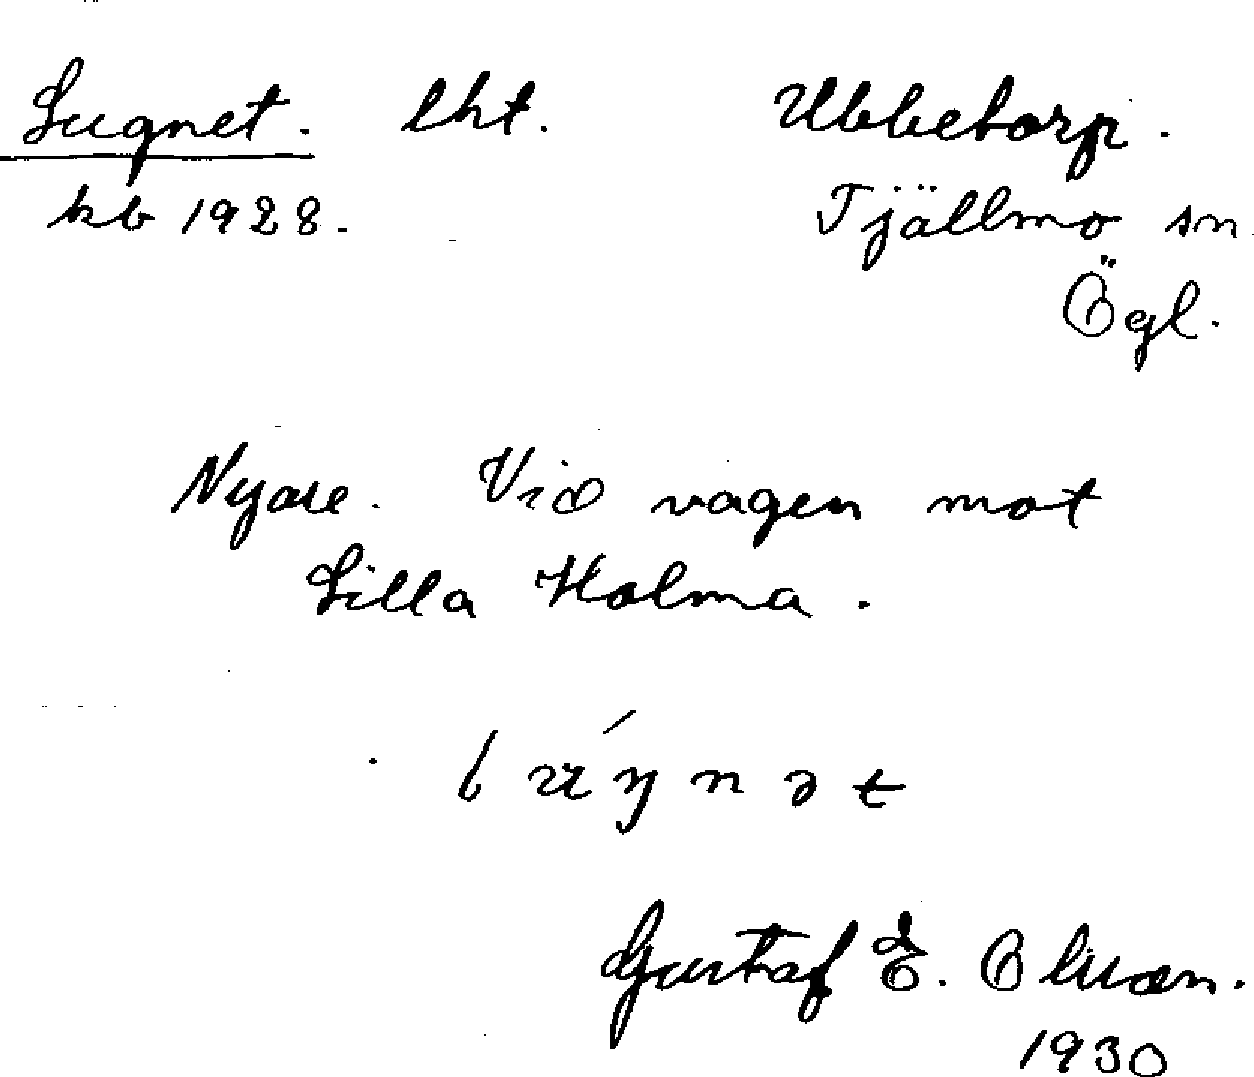 Lugnet. lht. Ubbetorp.
kb 1928. Tjällmo sn.
Ögl.
Nyare. Vid vagen mot
Lilla Holma.
Gustaf E.
1930